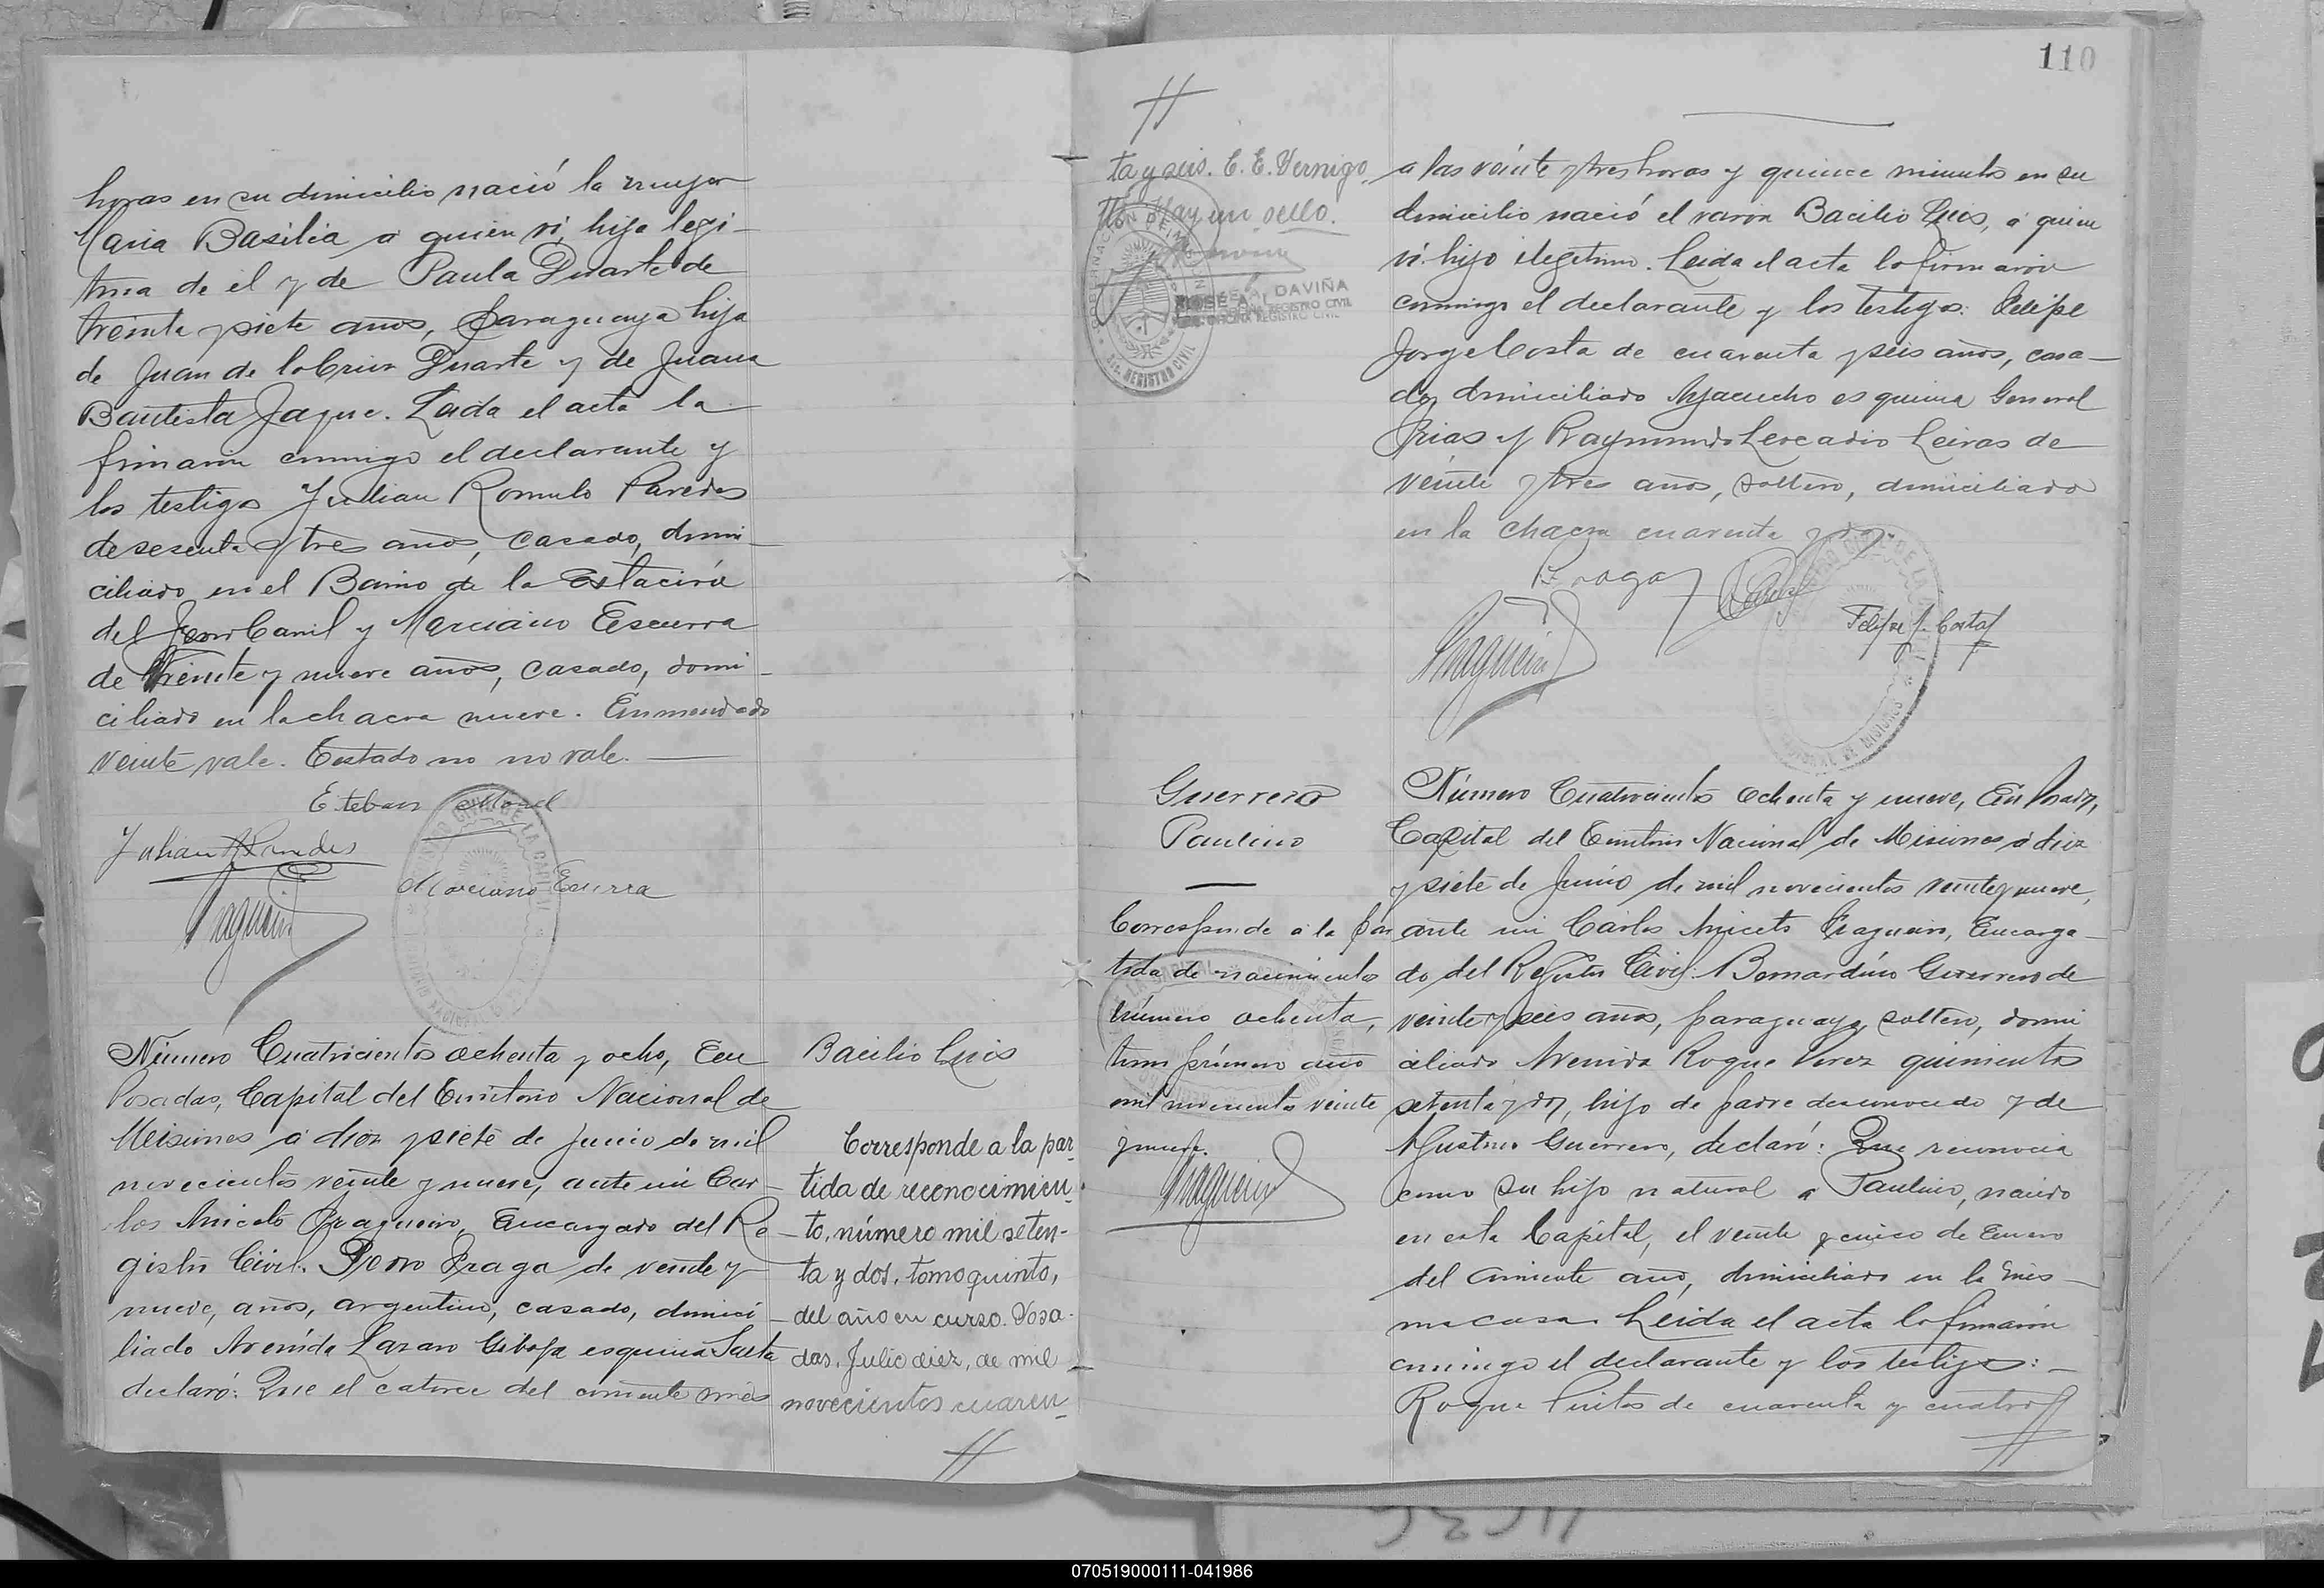 horas en su domicilio nació la mujer
Maria Basilia a quien ví, hija legi-
tima de el y de Paula Duarte de
treinta y siete años, paraguaya hija
de Juan de la Cruz Duarte y de Juana
Bautista Jaque. Leida el acta la
firmaron conmigo el declarante y
los testigos Julian Romulo Paredes
de sesenta y tres años, casado, domi-
ciliado en el Barrio de la Estación
del Ferro Carril y Marciano Escurra
de treinta y nueve años, casado, domi-
ciliado en la chacra nueve. Enmendado
veinte vale. Testado no no vale.
Esteban Morel
Julian R Paredes
Marciano Escurra
Número Cuatrocientos ochenta y ocho, En
Posadas, Capital del Territorio Nacional de
Misiones a diez y siete de Junio de mil
novecientos veinte y nueve, ante mi Car-
los Aniceto Fragueiro, Encargado del Re-
gistro Civil. Pedro Fraga de veinte y
nueve, años, argentino, casado, domici-
liado Avenida Lazaro Gibaja esquina Salta
declaró: Que el catorce del corriente mes
Bacilio Luis
Corresponde a la par-
tida de reconocimien-
to, número mil seten-
ta y dos, tomo quinto,
del año en curso. Posa-
das, Julio diez, de mil
novecientos cuaren-
110
ta y seis. E. E. Vernigo
Hay un sello.
JOSÉ A. DAVIÑA
REGISTRO CIVIL
a las veinte y tres horas y quince minutos en su
domicilio nació el varón Bacilio Luis, a quien
ví hijo ilegitimo. Leida el acta la firmaron
conmigo el declarante y los testigos: Felipe
Jorge Costa de cuarenta y seis años, casa-
do, domiciliado Ayacucho esquina General
Frias y Raymundo Leocadio Leivas de
veinte y tres años, soltero, domiciliado
en la chacra cuarenta y dos.
P. Fraga
Felipe J. Costa
Fragueiro
Guerrero
Paulino
Corresponde a la par
tida de nacimiento
número ochenta,
tomo primero año
mil novecientos veinte
y nueve.
Fragueiro
Número Cuatrocientos ochenta y nueve, En Posadas,
Capital del Territorio Nacional de Misiones a diez
y siete de Junio de mil novecientos veinte y nueve,
ante mi Carlos Aniceto Fragueiro, Encarga-
do del Registro Civil: Bernardino Guerrero de
veinte y seis años, paraguayo, soltero, domi
ciliado Avenida Roque Perez quinientos
setenta y dos, hijo de padre desconocido y de
Agustina Guerrero, declaró: Que reconocia
como su hijo natural a Paulino, nacido
en esta Capital, el veinte y cinco de Enero
del corriente año, domiciliado en la mis-
ma casa. Leida el acta la firmaron
conmigo el declarante y los testigos:
Roque Pintos de cuarenta y cuatro
070519000111-041986